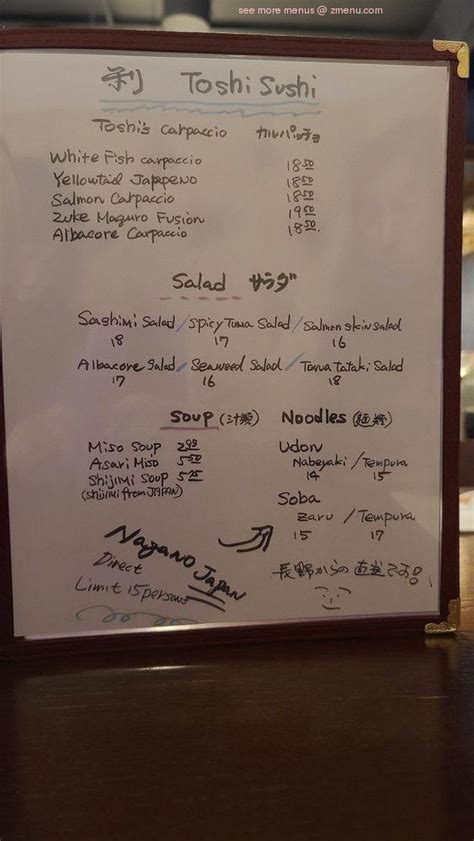 see more menus @ zmenu.com
利 Toshi Sushi
Toshi's Carpaccio カルパッチョ
White Fish carpaccio 18.50
Yellowtail Jalapeno 18.50
Salmon Carpaccio 18.50
Zuke Maguro Fusion 19.50
Albacore Carpaccio 18.50
Salad サラダ
Sashimi Salad / Spicy Tuna Salad / Salmon skin salad
18 17 16
Albacore Salad / Seaweed Salad / Tuna Tataki Salad
17 16 18
Soup (汁類) Noodles (麺類)
Miso Soup
Asari Miso 5.50
Shijimi Soup
(shijimi from JAPAN)
Udon
Nabeyaki / Tempura
14 15
Soba
Zaru / Tempura
15 17
Nagano Japan
Direct
Limit 15 persons
長野からの直送です!